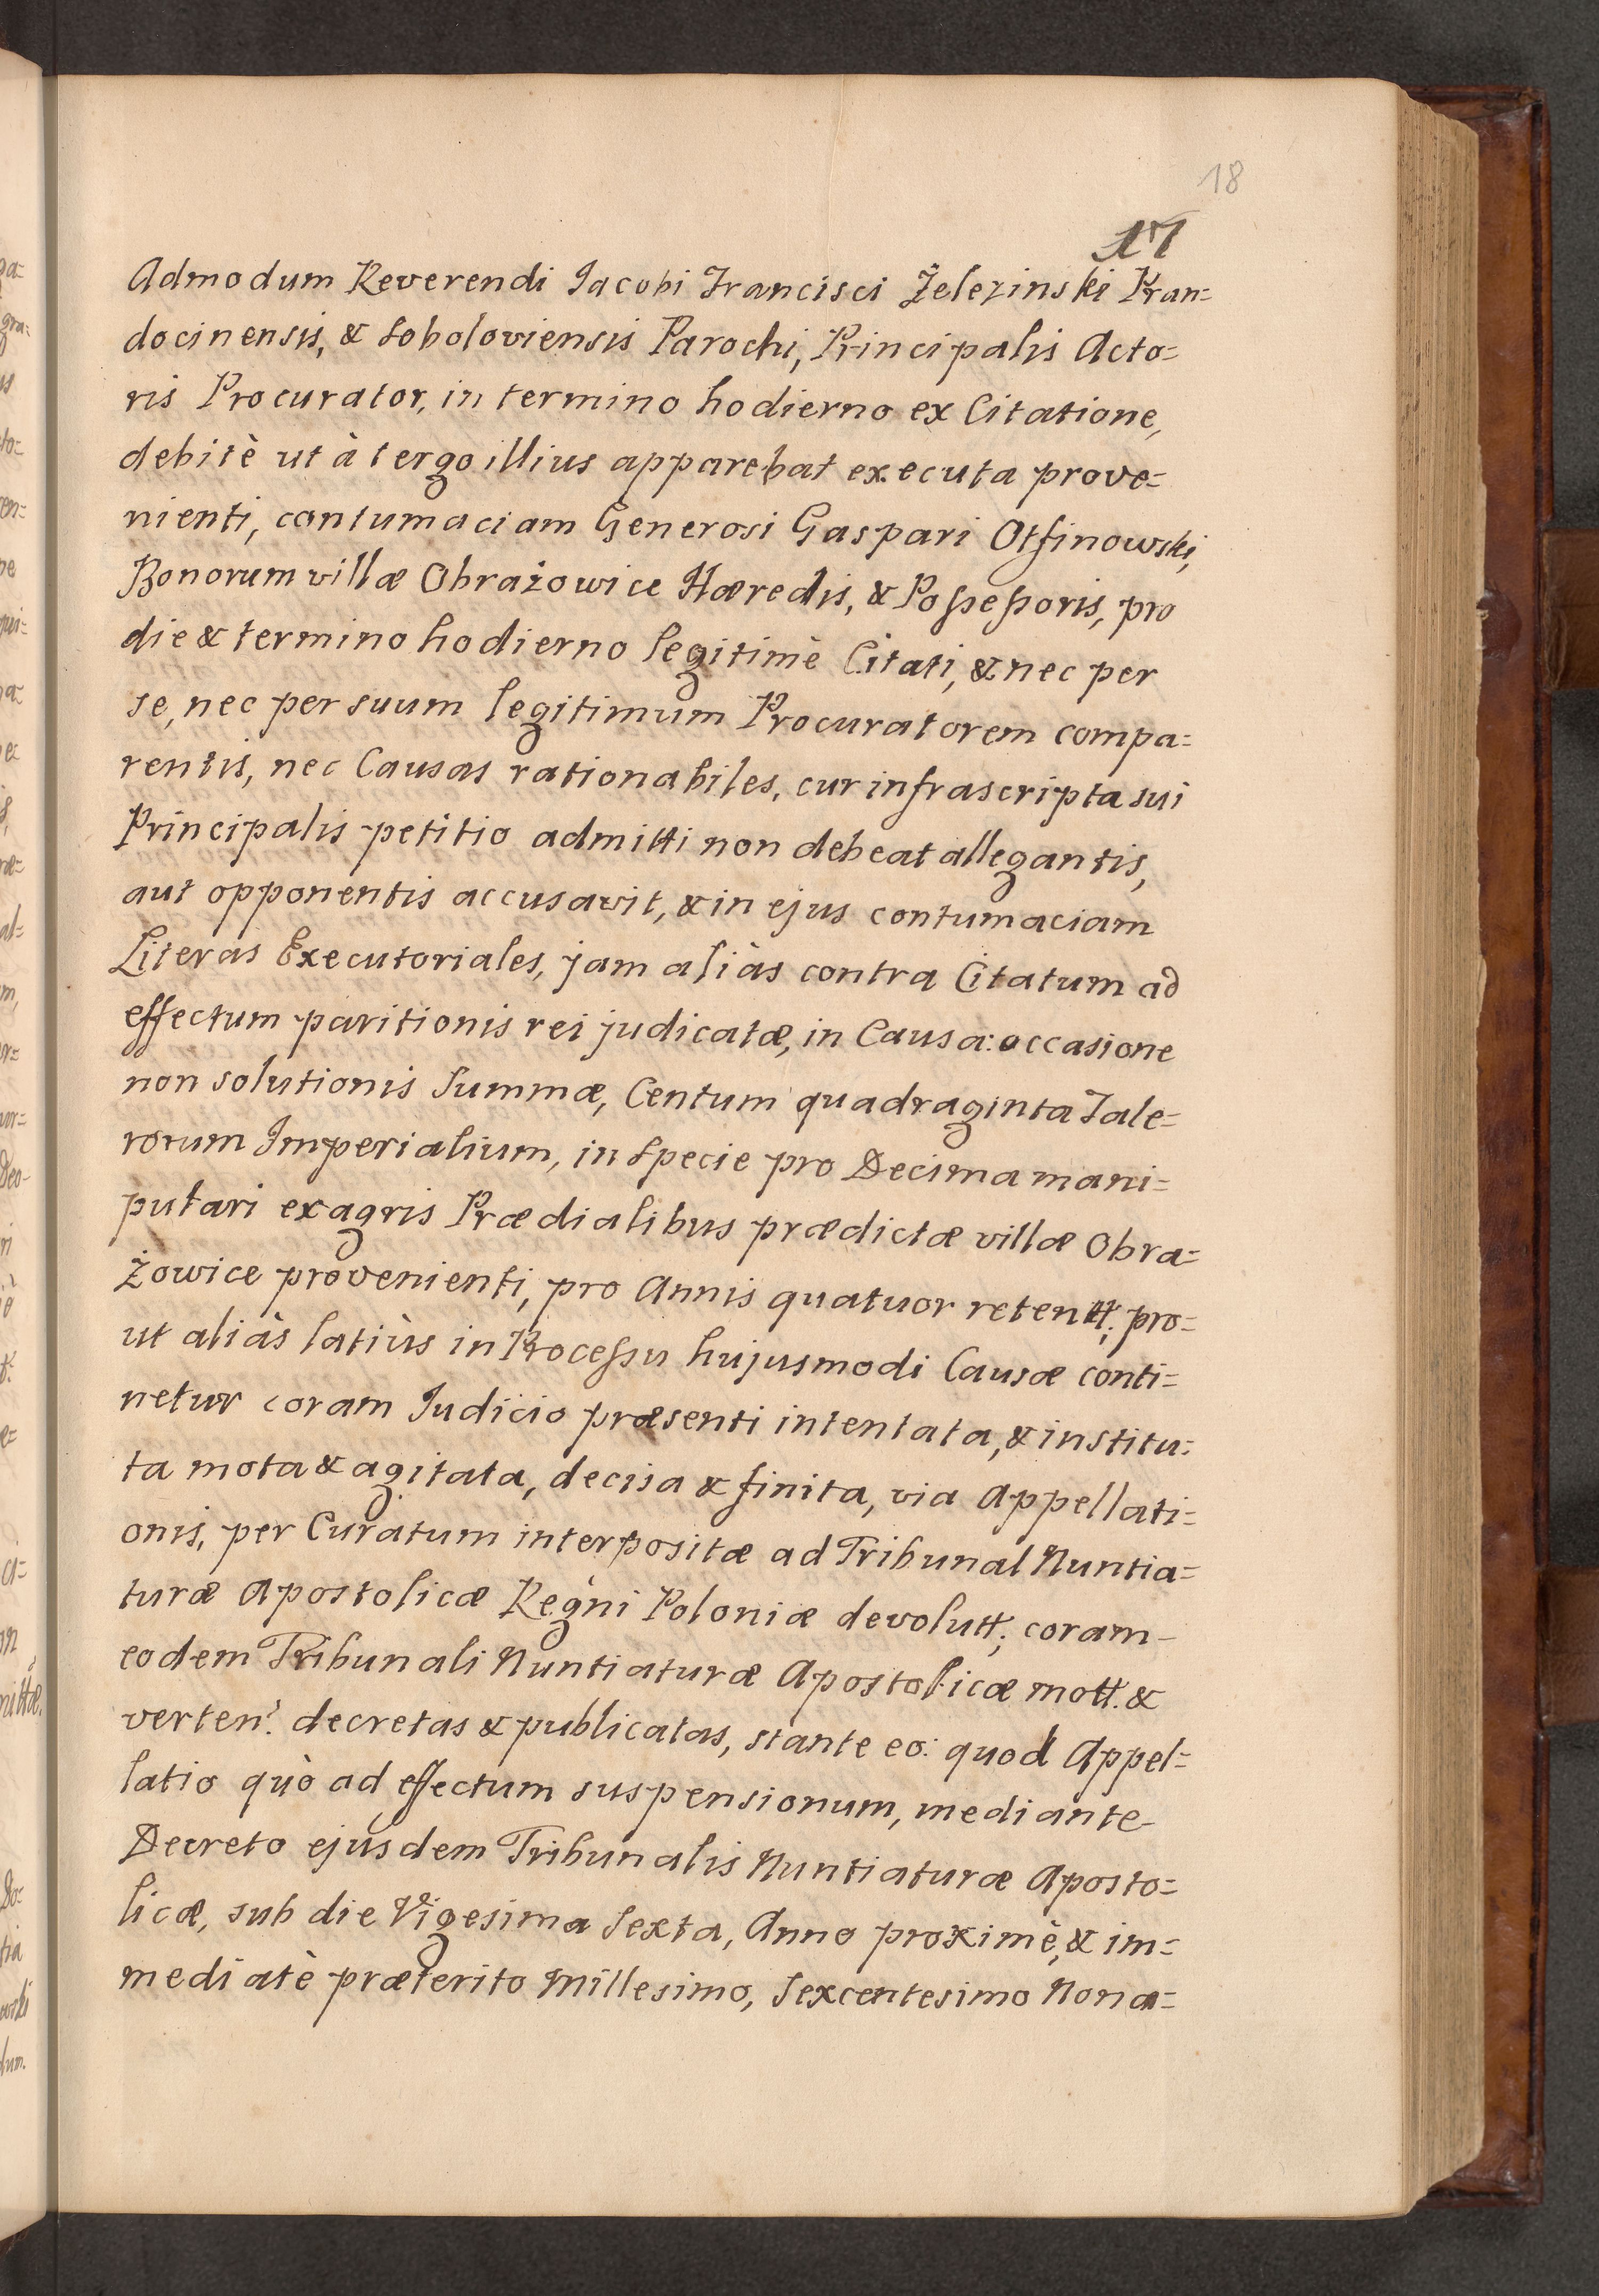 18
17
Admodum Reverendi Jacobi Francisci Żelezinski Pran=
docinensis, & Soboloviensis Parochi, Principalis Acto=
ris Procurator, in termino hodierno ex Citatione,
debitè ut à tergo illius apparebat executa prove=
nienti, contumaciam Generosi Gaspari Otfinowski,
Bonorum villæ Obrażowice Hæredis, & Possessoris, pro
die & termino hodierno legitimè Citati, & nec per
se, nec per suum legitimum Procuratorem compa=
rentis, nec Causas rationabiles, cur infrascripta sui
Principalis petitio admitti non debeat allegantis,
aut opponentis accusavit, & in ejus contumaciam
Literas Executoriales, jam aliàs contra Citatum ad
effectum paritionis rei judicatæ, in Causa: occasione
non solutionis Summæ, Centum quadraginta Tale=
rorum Imperialium, in Specie pro Decima mani=
pulari ex agris Prædialibus prædictæ villæ Obra=
żowice provenienti, pro Annis quatuor retentt; pro=
ut aliàs latiùs in Processu hujusmodi Causæ conti=
netur coram Judicio præsenti intentata, & institu=
ta mota & agitata, decisa & finita, via Appellati=
onis, per Curatum interpositæ ad Tribunal Nuntia=
turæ Apostolicæ Regni Poloniæ devolutt; coram
eodem Tribunali Nuntiaturæ Apostolicæ mott. &
verten: decretas & publicatas, stante eo: quod Appel=
latio quò ad effectum suspensionum, mediante
Decreto ejusdem Tribunalis Nuntiaturæ Aposto=
licæ, sub die Vigesima Sexta, Anno proximè, & im=
mediatè præterito Millesimo, Sexcentesimo Nona=